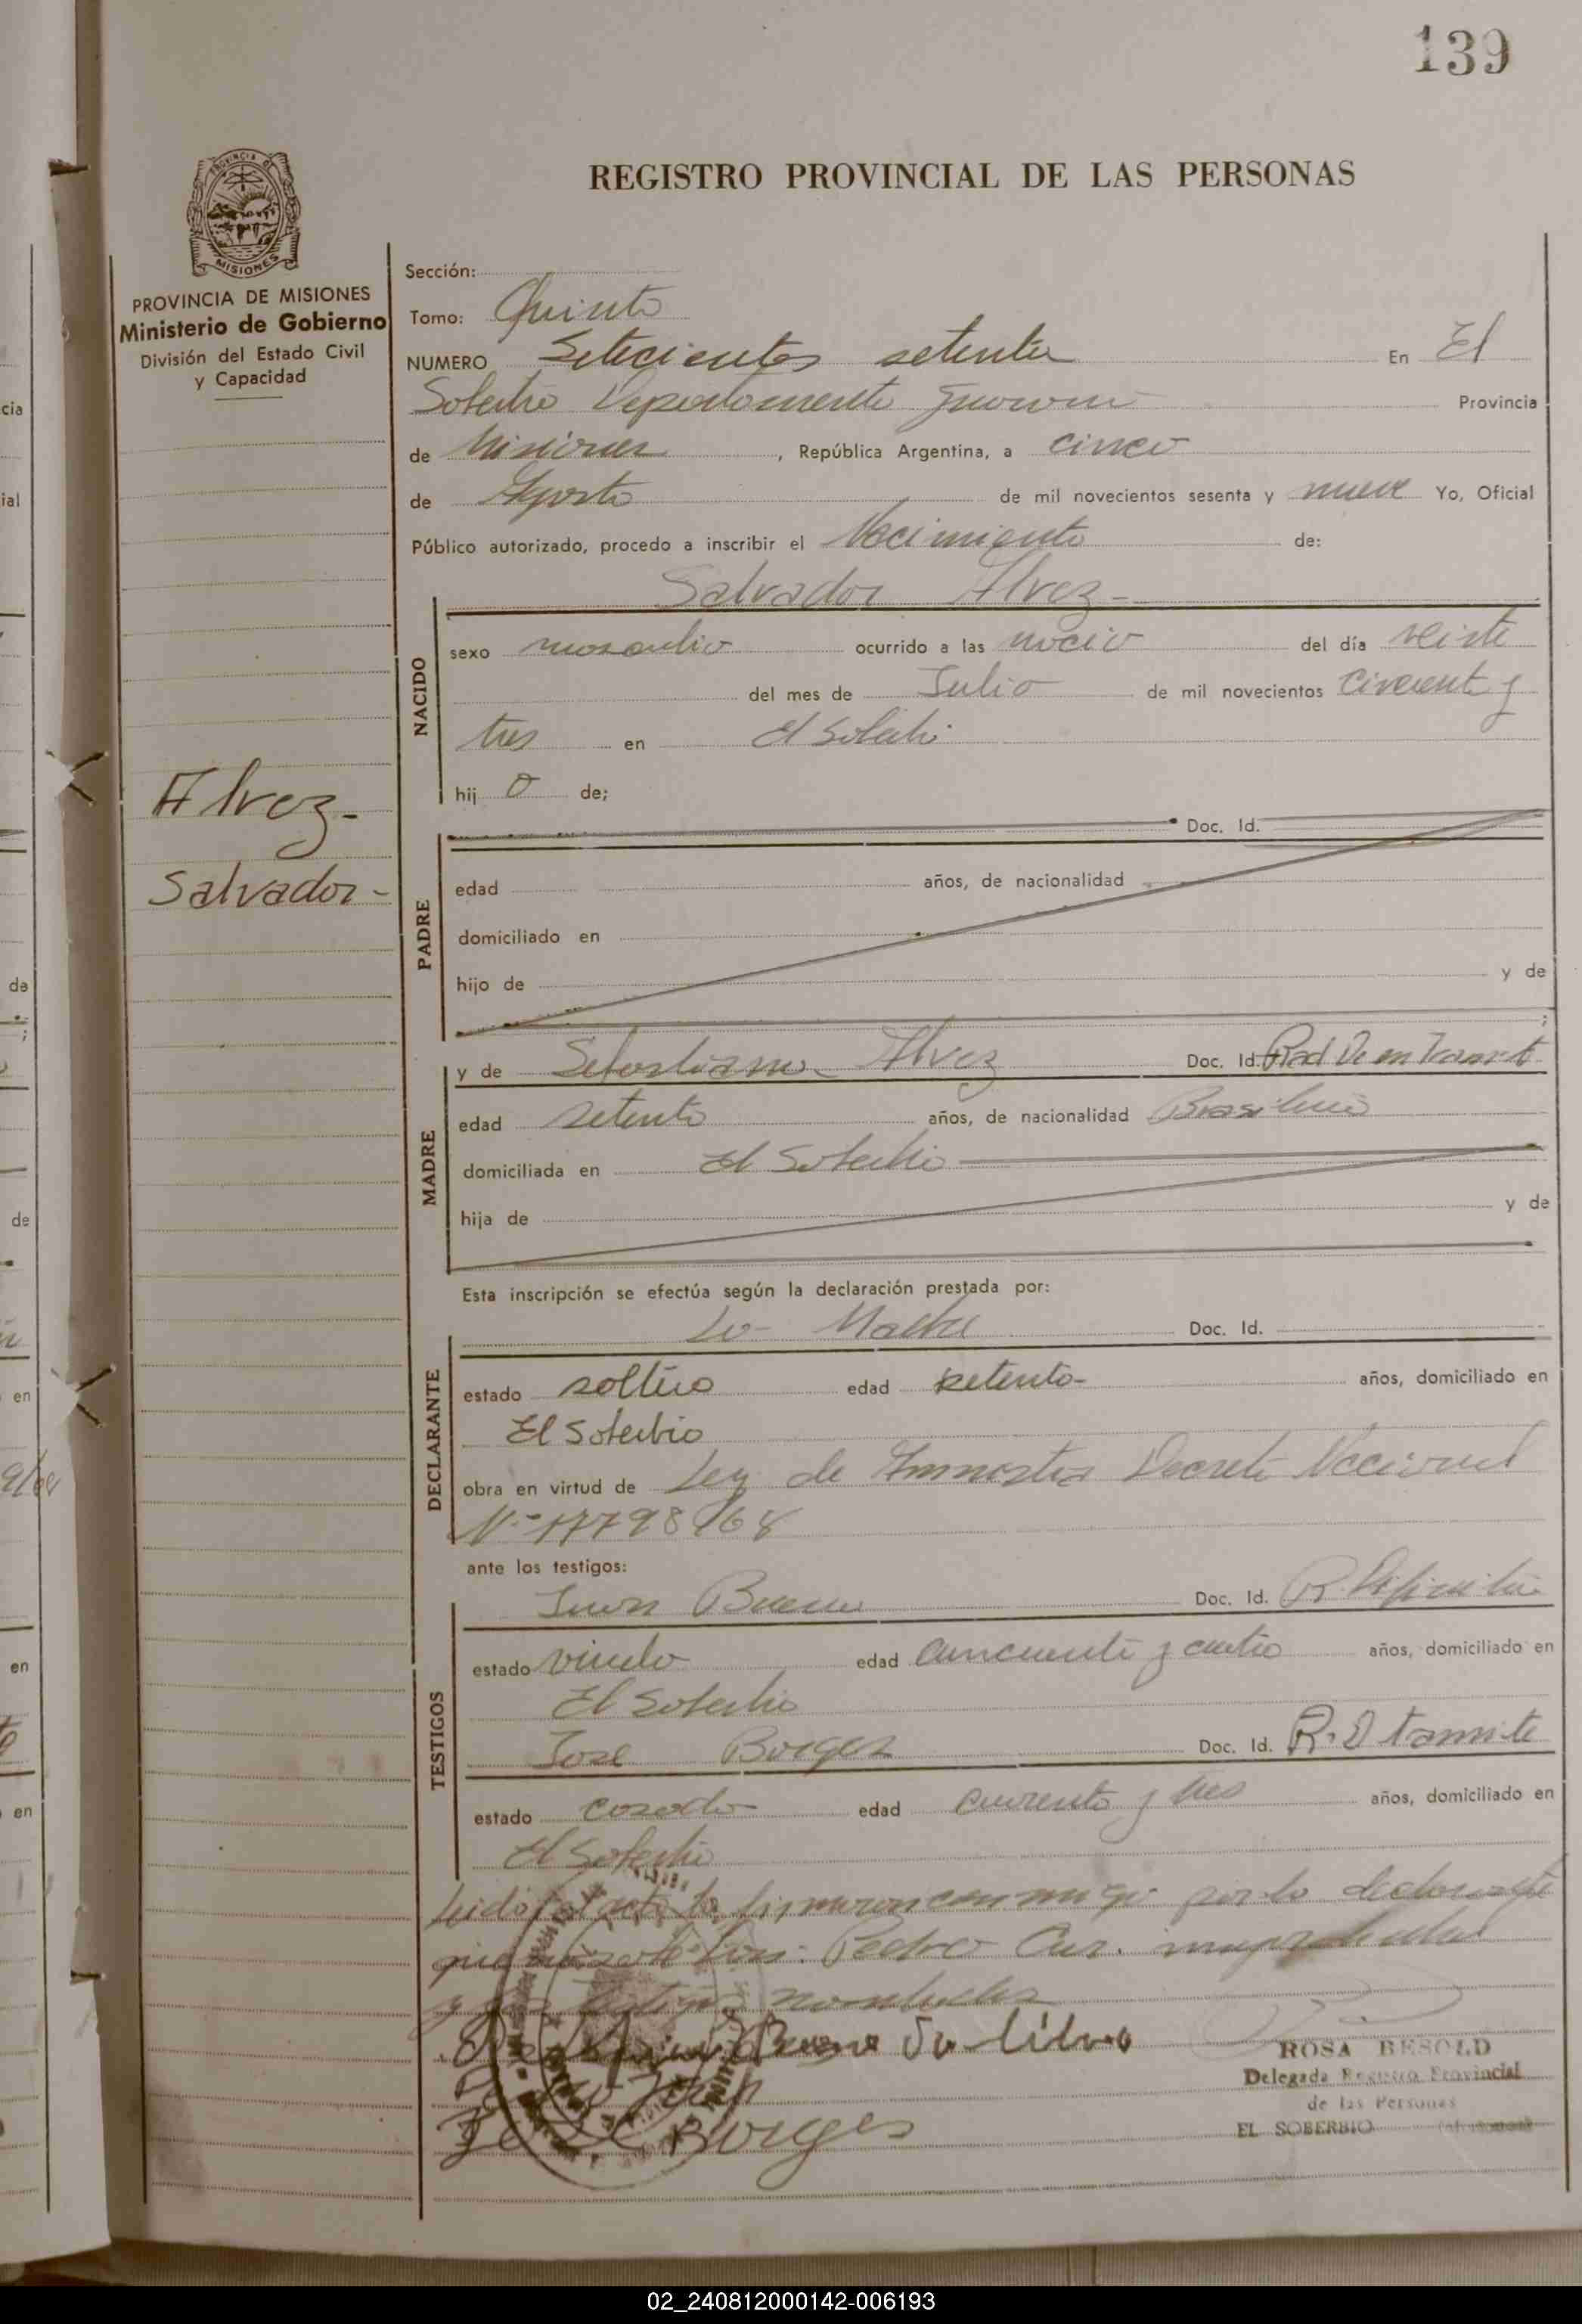 139
REGISTRO PROVINCIAL DE LAS PERSONAS
PROVINCIA DE MISIONES
MISIONES
PROVINCIA DE MISIONES
Ministerio de Gobierno
División del Estado Civil
y Capacidad
Alvez-
Salvador-
Sección:
Tomo: Quinto
NUMERO Setecientos setenta En El
Soberbio Departamento Guarani Provincia
de Misiones, República Argentina, a cinco
de Agosto de mil novecientos sesenta y nueve Yo, Oficial
Público autorizado, procedo a inscribir el Nacimiento de:
Salvador Alvez-
NACIDO
sexo masculino ocurrido a las del día veinte
del mes de Julio de mil novecientos cincuenta y
tres en El Soberbio
hij o de;
PADRE
Doc. Id.
edad años, de nacionalidad
domiciliado en
hijo de y de
;
MADRE
y de Sebastiana Alvez Doc. Id. Rad De en Tramit
edad setenta años, de nacionalidad Brasilera
domiciliada en El Soberbio
hija de y de
Esta inscripción se efectúa según la declaración prestada por:
DECLARANTE
La Madre Doc. Id.
estado soltera edad setenta- años, domiciliado en
El Soberbio
obra en virtud de Ley de Amnistia Decreto Nacional
Nº 17798/68
ante los testigos:
TESTIGOS
Juan Bueno Doc. Id. R. Definitiva
estado viudo edad cincuenta y cuatro años, domiciliado en
El Soberbio
Jose Borges Doc. Id. R. D tramite
estado casado edad cuarenta y tres años, domiciliado en
El Soberbio
Leida el acta la firmaron conmigo por la declarante
Pedro
y los testigos nombrados
Bueno da Silva
Jose Borges
ROSA BESOLD
Delegada Registro Provincial
de las Personas
EL SOBERBIO
02_240812000142-006193